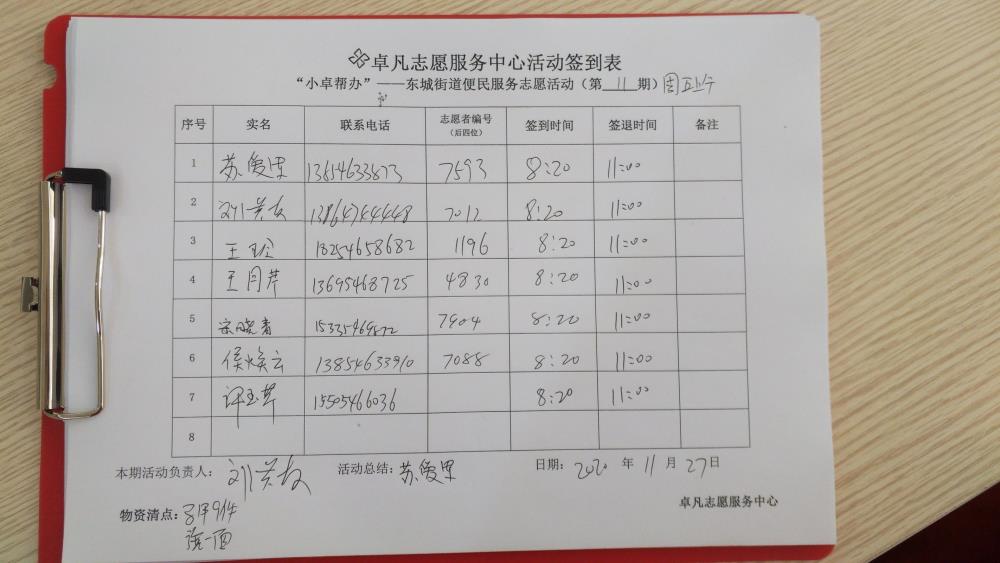 卓凡志愿服务中心活动签到表
“小卓帮办”——东城街道便民服务志愿活动（第 11 期）周五上午
序号 实名 联系电话 志愿者编号（后四位） 签到时间 签退时间 备注
1 苏爱军 13814633873 7593 8:20 11:00
2 刘兰友 13864744448 7012 8:20 11:00
3 王玲 18254658682 1196 8:20 11:00
4 王月芹 13695468725 4830 8:20 11:00
5 宋晓青 7904 8:20 11:00
6 侯焕云 13854633910 7088 8:20 11:00
7 玉芹 15505466036 8:20 11:00
8
本期活动负责人： 刘兰友 活动总结： 苏爱军 日期： 2020 年 11 月 27 日
卓凡志愿服务中心
物资清点： 9件
旗一面